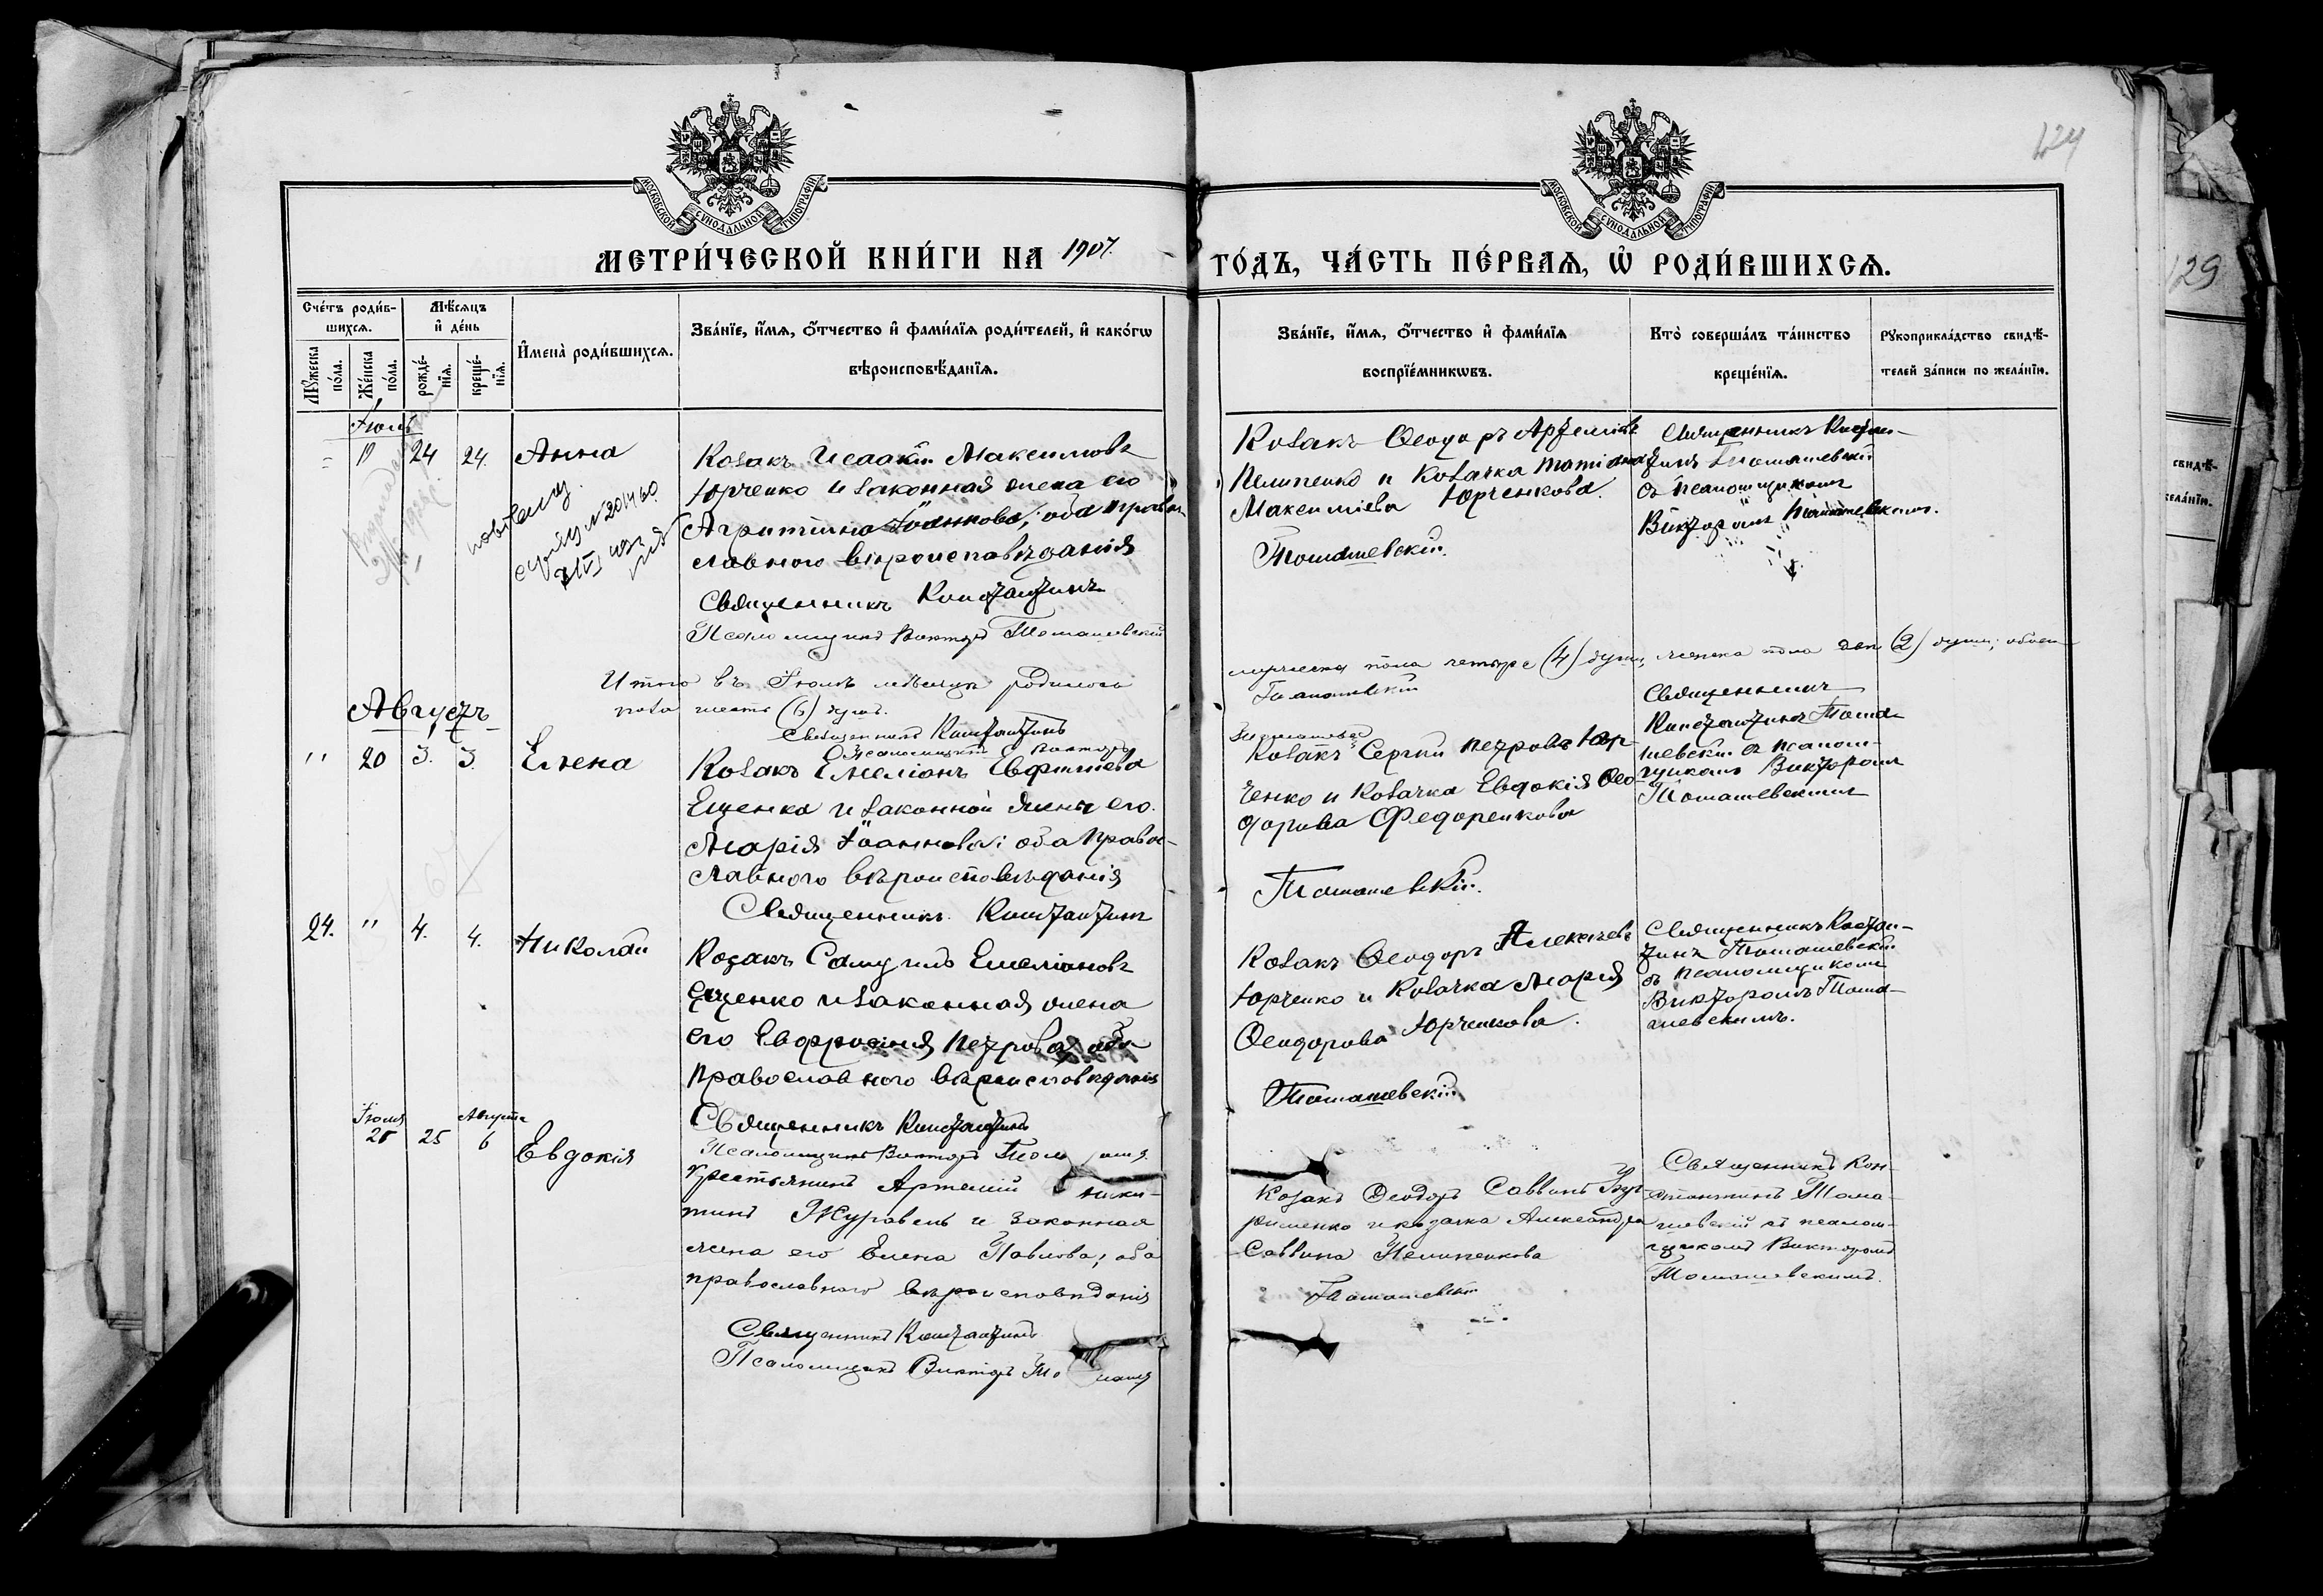 124
129
МОСКОВСКОЙ СУНОДАЛЬНОЙ ТИПОГРАФІИ
МОСКОВСКОЙ СУНОДАЛЬНОЙ ТИПОГРАФІИ
МЕТРИ́ЧЕСКОЙ КНИ́ГИ НА 1907. ГО́ДЪ, ЧА́СТЬ ПЕ́РВАѦ, Ѡ҆ РОДИ́ВШИХСѦ.
Сче́тъ роди́в-
шихсѧ.
Мꙋ́жеска по́ла.
Же́нска по́ла.
Мѣ́сѧцъ
и҆ де́нь
рожде́-нїѧ.
креще́-нїѧ.
И҆мена̀ роди́вшихсѧ.
Зва́нїе, и҆́мѧ, ѻ҆́тчество и҆ фами́лїѧ роди́телей, и҆ како́гѡ
вѣроисповѣ́данїѧ.
Зва́нїе, и҆́мѧ, ѻ҆́тчество и҆ фами́лїѧ
воспрїе́мникѡвъ.
Кто̀ соверша́лъ та́инство
креще́нїѧ.
Рꙋкоприкла́дство свидѣ́-
телей за́писи по жела́нїю.
Іюль
19 24 24. Анна
Козакъ Исаакій Максимовъ
Юрченко и законная жена его
Агриппина Іоаннова; оба право-
славного вѣроисповѣданія
Священникъ Константинъ
Псаломщикъ Викторъ Томашевскій
Козакъ Ѳеодоръ Артеміевъ
Пелипенко и козачка Татіана
Максимова Юрченкова.
Томашевскій.
Священникъ Констан-
тинъ Томашевскій
съ псаломщикомъ
Викторомъ Томашевскимъ.
Итого въ Іюлѣ мѣсяцѣ родилось
мужеска пола четыре (4) души, женска пола двѣ (2) души; обоего
пола шесть (6) душъ.
Священникъ Константинъ
Томашевскій
Псаломщикъ Викторъ
Томашевскій
Августъ
" 20 3. 3. Елена
Козакъ Емеліанъ Евфиміева
Ещенка и законной жены его
Марія Іоаннова; оба право-
славного вѣроисповѣданія
Священникъ Константинъ
Козакъ Сергій Петровъ Юр-
ченко и козачка Евдокія Ѳео-
дорова Федоренкова
Томашевскій.
Священникъ
Константинъ Тома-
шевскій съ псалом-
щикомъ Викторомъ
Томашевскимъ
24. " 4. 4. Николай
Козакъ Самуилъ Емеліановъ
Ещенко и законная жена
его Евфросинія Петрова; оба
православного вѣроисповѣданія
Священникъ Константинъ
Псаломщикъ Викторъ
Козакъ Ѳеодоръ Алексѣевъ
Юрченко и козачка Марія
Ѳеодорова Юрченкова.
Томашевскій
Священникъ Констан-
тинъ Томашевскій
съ псаломщикомъ
Викторомъ Тома-
шевскимъ.
Іюля Августа
25 6 Евдокія
Крестьянинъ Артемій Ники-
тинъ Журавель и законная
жена его Елена Павлова; оба
православного вѣроисповѣданія
Священникъ Константинъ
Псаломщикъ Викторъ
Козакъ Ѳеодоръ Саввинъ
и козачка Александра
Саввина Пелипенкова
Томашевскій
Священникъ Кон-
стантинъ Тома-
шевскій съ псалом-
щикомъ Викторомъ
Томашевскимъ.